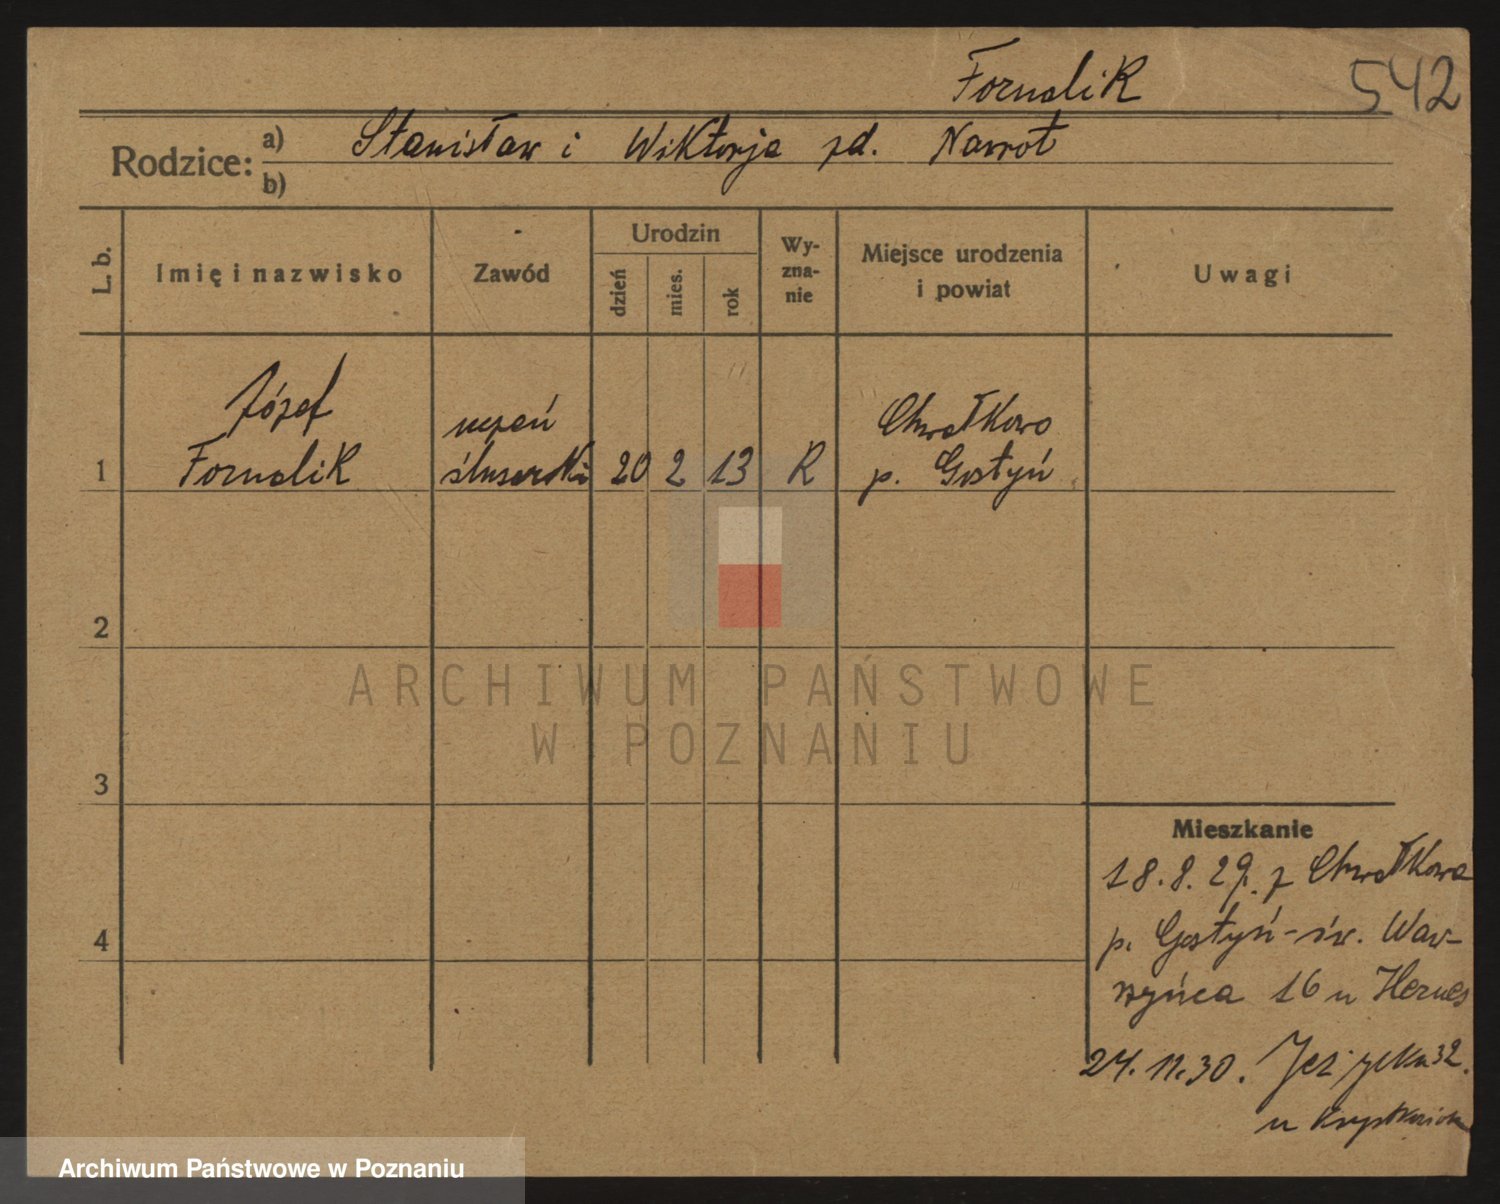 Fornalik
542
Rodzice: a) Stanisław i Wiktorja zd. Nawrot
b)
L. b.
Imię i nazwisko
Zawód
Urodzin
dzień
mies.
rok
Wy-
zna-
nie
Miejsce urodzenia
i powiat
Uwagi
Józef
Fornalik
uczeń
ślusarski
1
20
2
13
R
Chwałkowo
p. Gostyń
2
3
4
ARCHIWUM PAŃSTWOWE
W POZNANIU
Mieszkanie
18.8.29. z Chwałkowa
p. Gostyń - św. Waw-
rzyńca 16 u Hernes
24.11.30. Jeżycka 32.
u
Archiwum Państwowe w Poznaniu